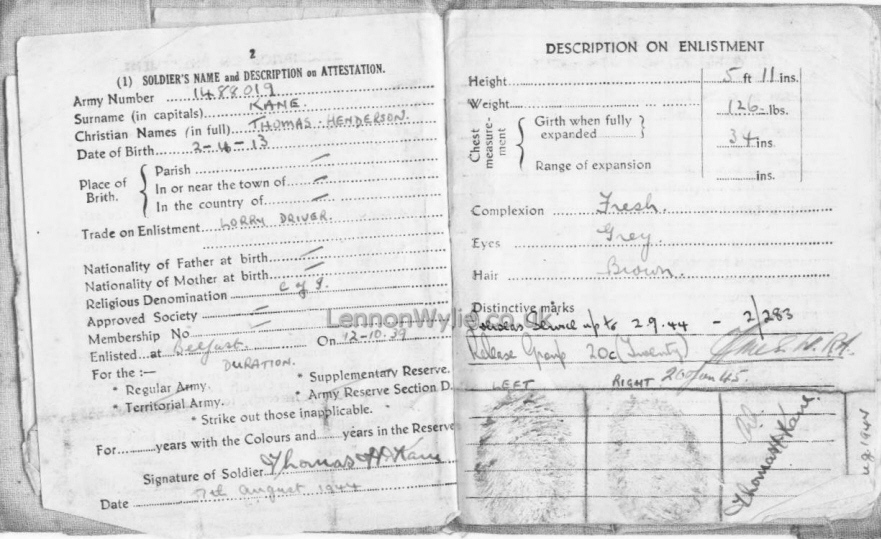 2
(1) SOLDIER'S NAME and DESCRIPTION on ATTESTATION.
Army Number 1488019
Surname (in capitals) KANE.
Christian Names (in full) THOMAS HENDERSON.
Date of Birth 2-4-13
Place of Birth.
Parish
In or near the town of
In the country of
Trade on Enlistment LORRY DRIVER.
Nationality of Father at birth
Nationality of Mother at birth
Religious Denomination C of I.
Approved Society
Membership No.
Enlisted at Belfast On 12-10-39
For the :— DURATION.
* Regular Army. * Supplementary Reserve.
* Territorial Army. * Army Reserve Section D.
* Strike out those inapplicable.
For years with the Colours and years in the Reserve
Signature of Soldier Thomas H Kane
Date 7th August 1944
DESCRIPTION ON ENLISTMENT
Height 5 ft 11 ins.
Weight 126 lbs.
Chest measure-ment
Girth when fully expanded 34 ins.
Range of expansion ins.
Complexion Fresh.
Eyes Grey
Hair Brown.
Distinctive marks
Overseas Service up to 2.9.44 - 2/283
Release Group 20c (Twenty)
20 Jan 45.
LEFT RIGHT
Thomas H Kane.
1944
LennonWylie.co.uk